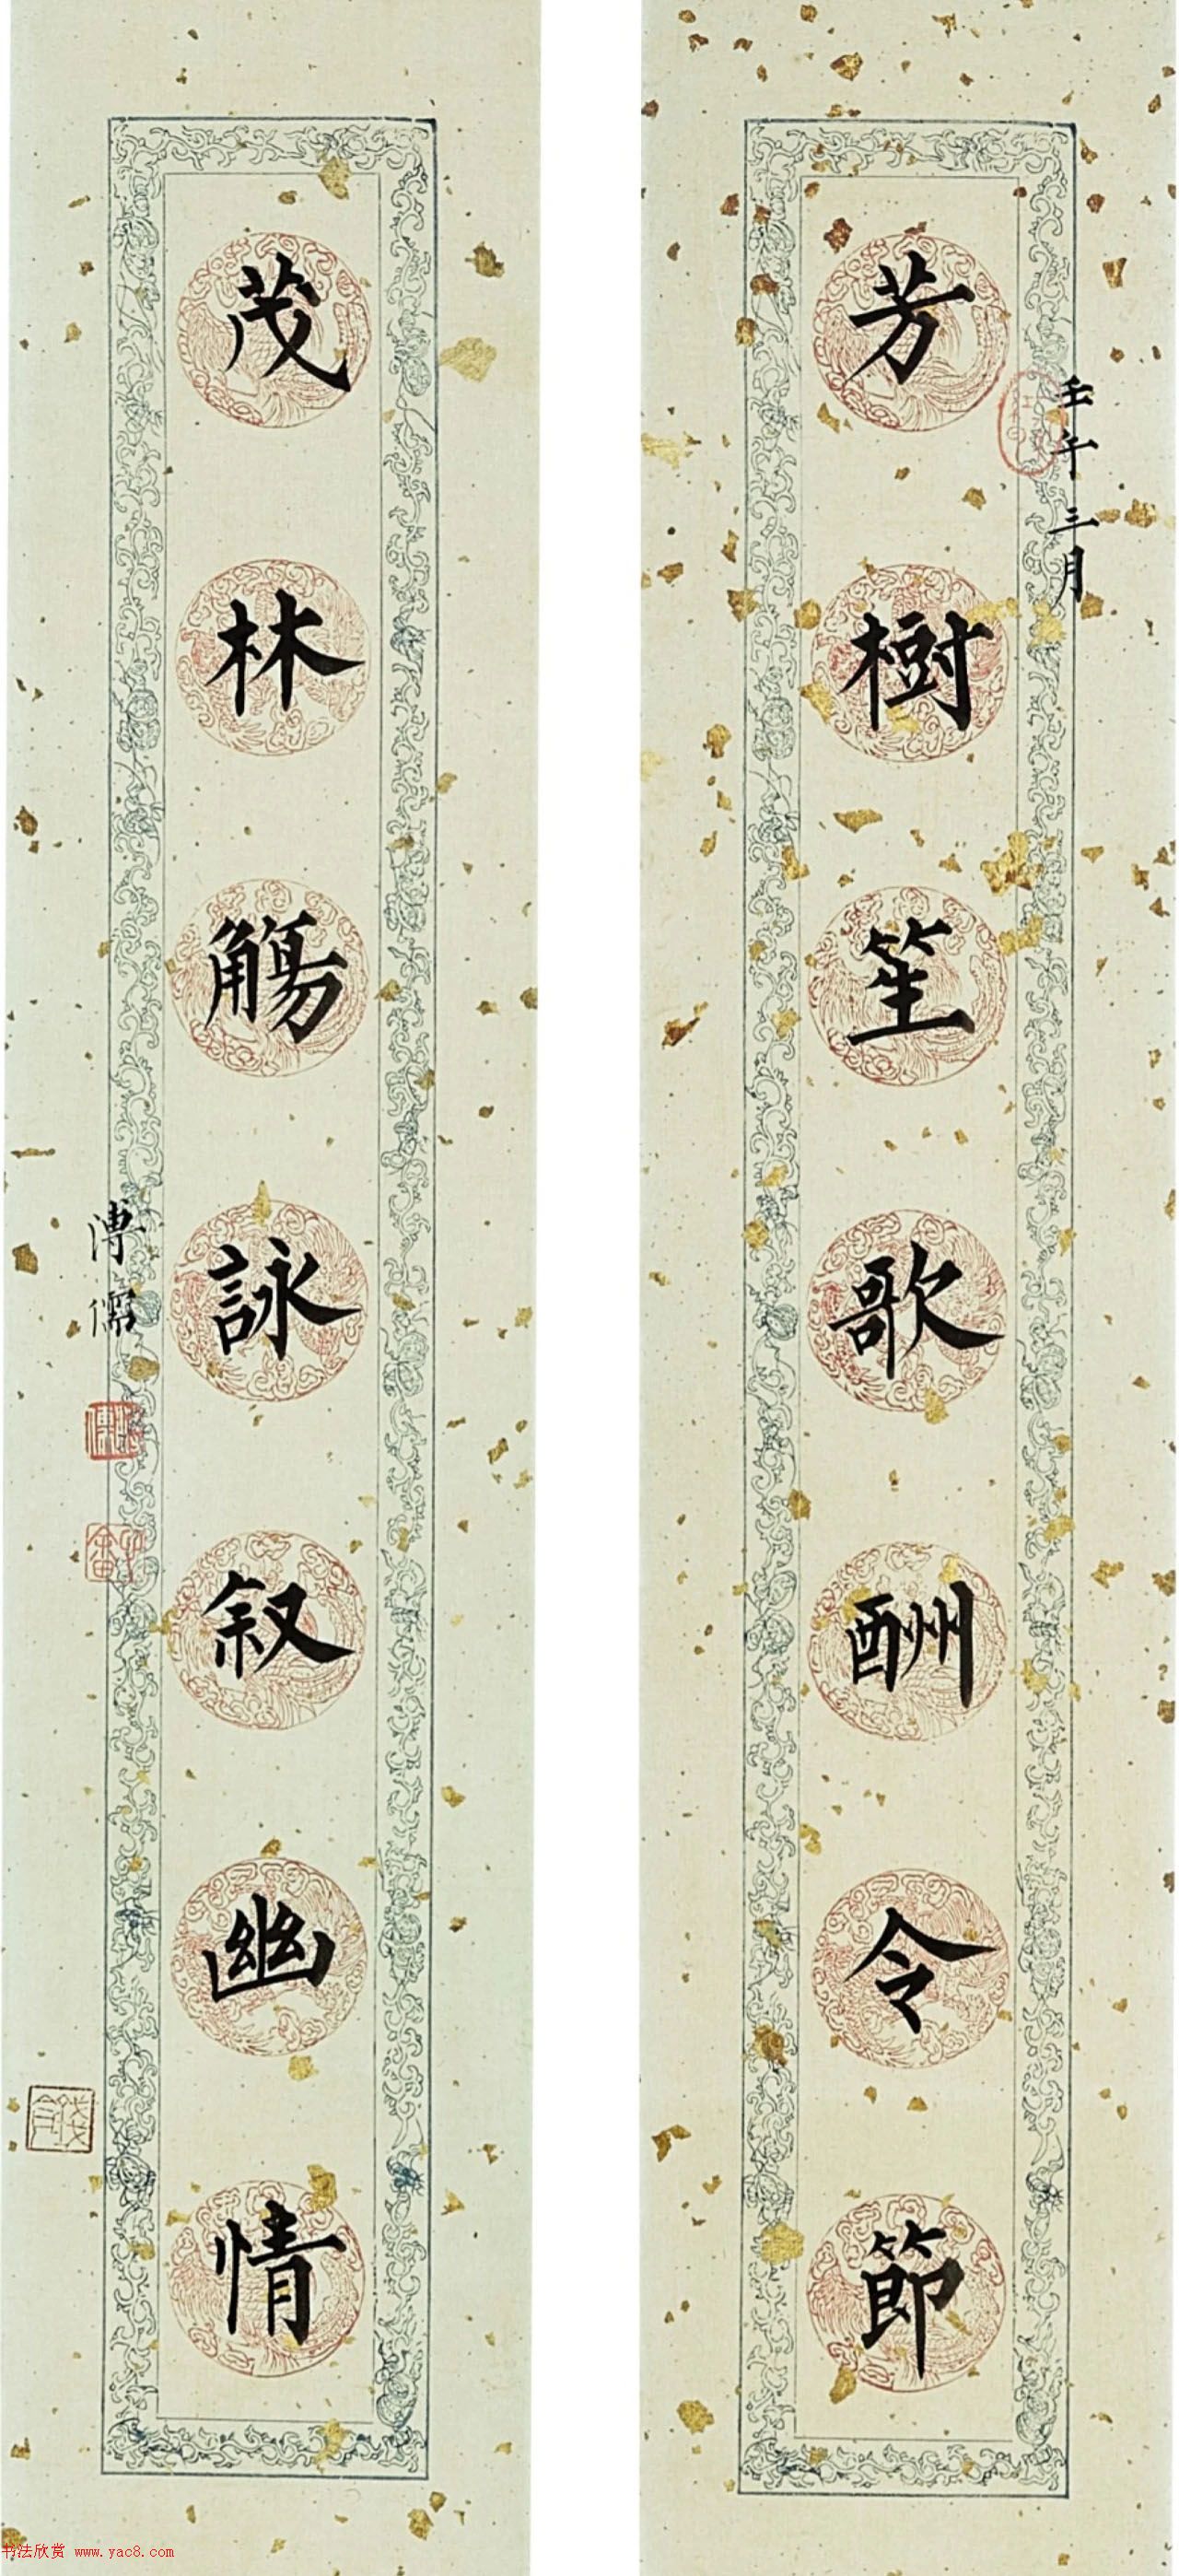 芳樹笙歌酬令節
壬午三月
茂林觴詠叙幽情
溥儒
书法欣赏 www.yac8.com